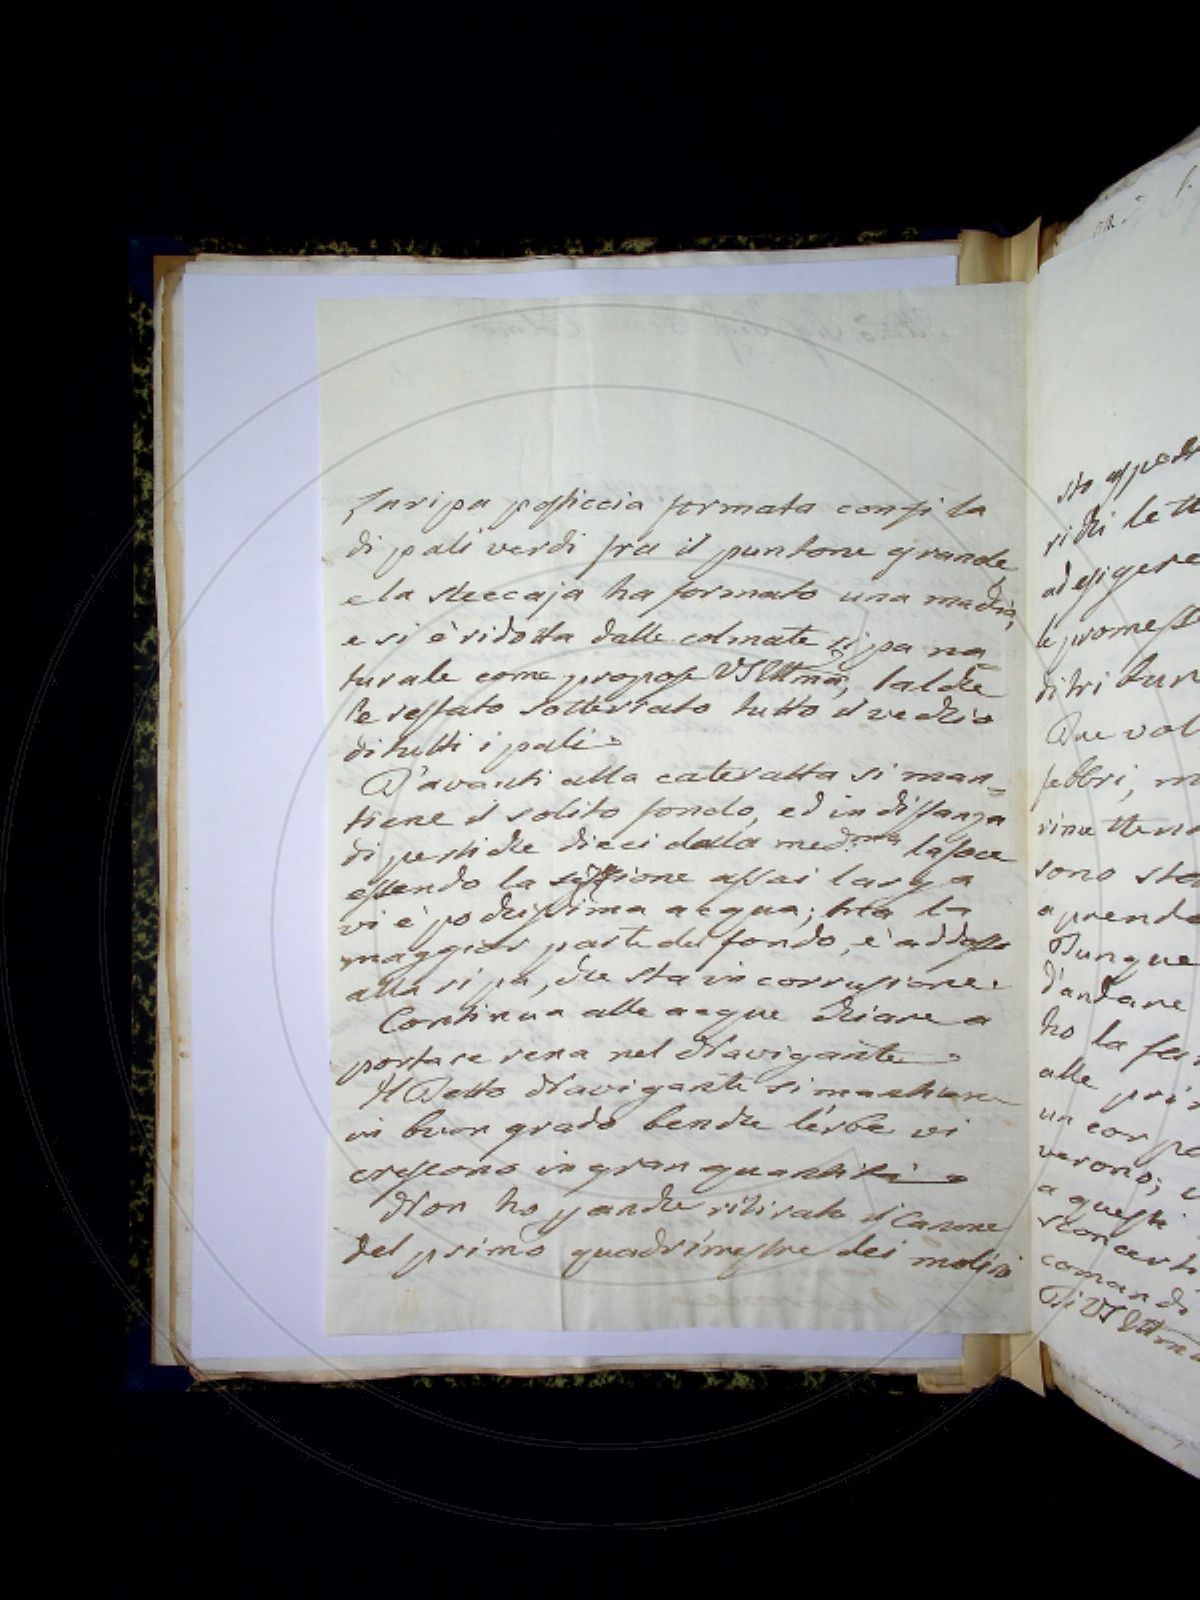 La ripa posticcia formata con fila
di pali verdi fra il puntone grande,
e la steccaja ha formato una macchia,
e si è ridotta dalle colmate ripa na=
turale come propose VS Illma, talche
è restato sotterrato tutto il vecchio
di tutti i pali.
D'avanti alla cateratta si man=
tiene il solito fondo, ed in distanza
di pertiche dieci dalla med.ma la foce
essendo la sezzione assai larga
vi è pochissima acqua; ma la
maggior parte del fondo, è addosso
alla ripa, che sta in corrusione.
Continua alle acque chiare a
portare rena nel Navigante.
Il Detto Navigante si mantiene
in buon grado benche l'erbe vi
crescono in gran quantità.
Non ho panche ritirato il Canone
del primo quadrimestre dei molini
sto
ridi
ad esigere
le promesse
di tri
Due vol
febbri, m
rimettend
sono sta
a prende
Dunque
d'andare
ho la fa
alle pri
un corpo
verono;
a questi
sconcerti
comandi
Di VS Illma